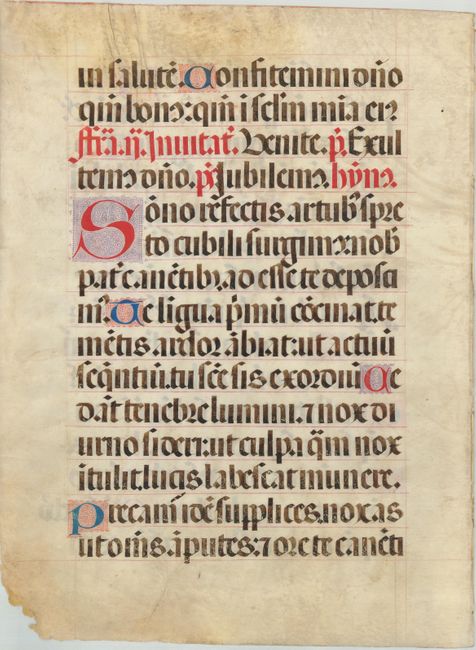 in salutē. Confitemini dño
qm̄ bonꝰ: qm̄ i sclm̄ mia eiꝰ
fr̄a. ij. Inuitat̄. Venite. p̄. Exul
temꝰ dño. p̄s. Jubilemꝰ. hÿnꝰ.
Sōno refectis artubꝰ spre
to cubili surgimꝰ: nob̄
pat̄ canētibꝰ, adesse te deposci
mꝰ. Te ligua p̄mū cōcinat, te
mētis ardor ābiat: ut actuū
seqn̄tiū, tu scē sis exordiū. Ce
dāt tenebre lumini, ⁊ nox di
urno sideri: ut culpa qm̄ nox
ītulit, lucis labescat munere.
Precam̄ idē supplices, noxas
ut om̄s āputes: ⁊ ore te canēti